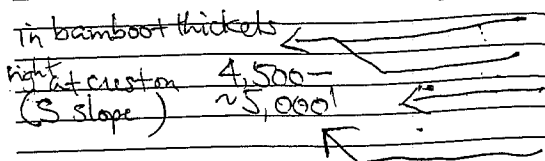 in bamboo thickets
right at crest on 4,500–
(S slope) ~5,000'